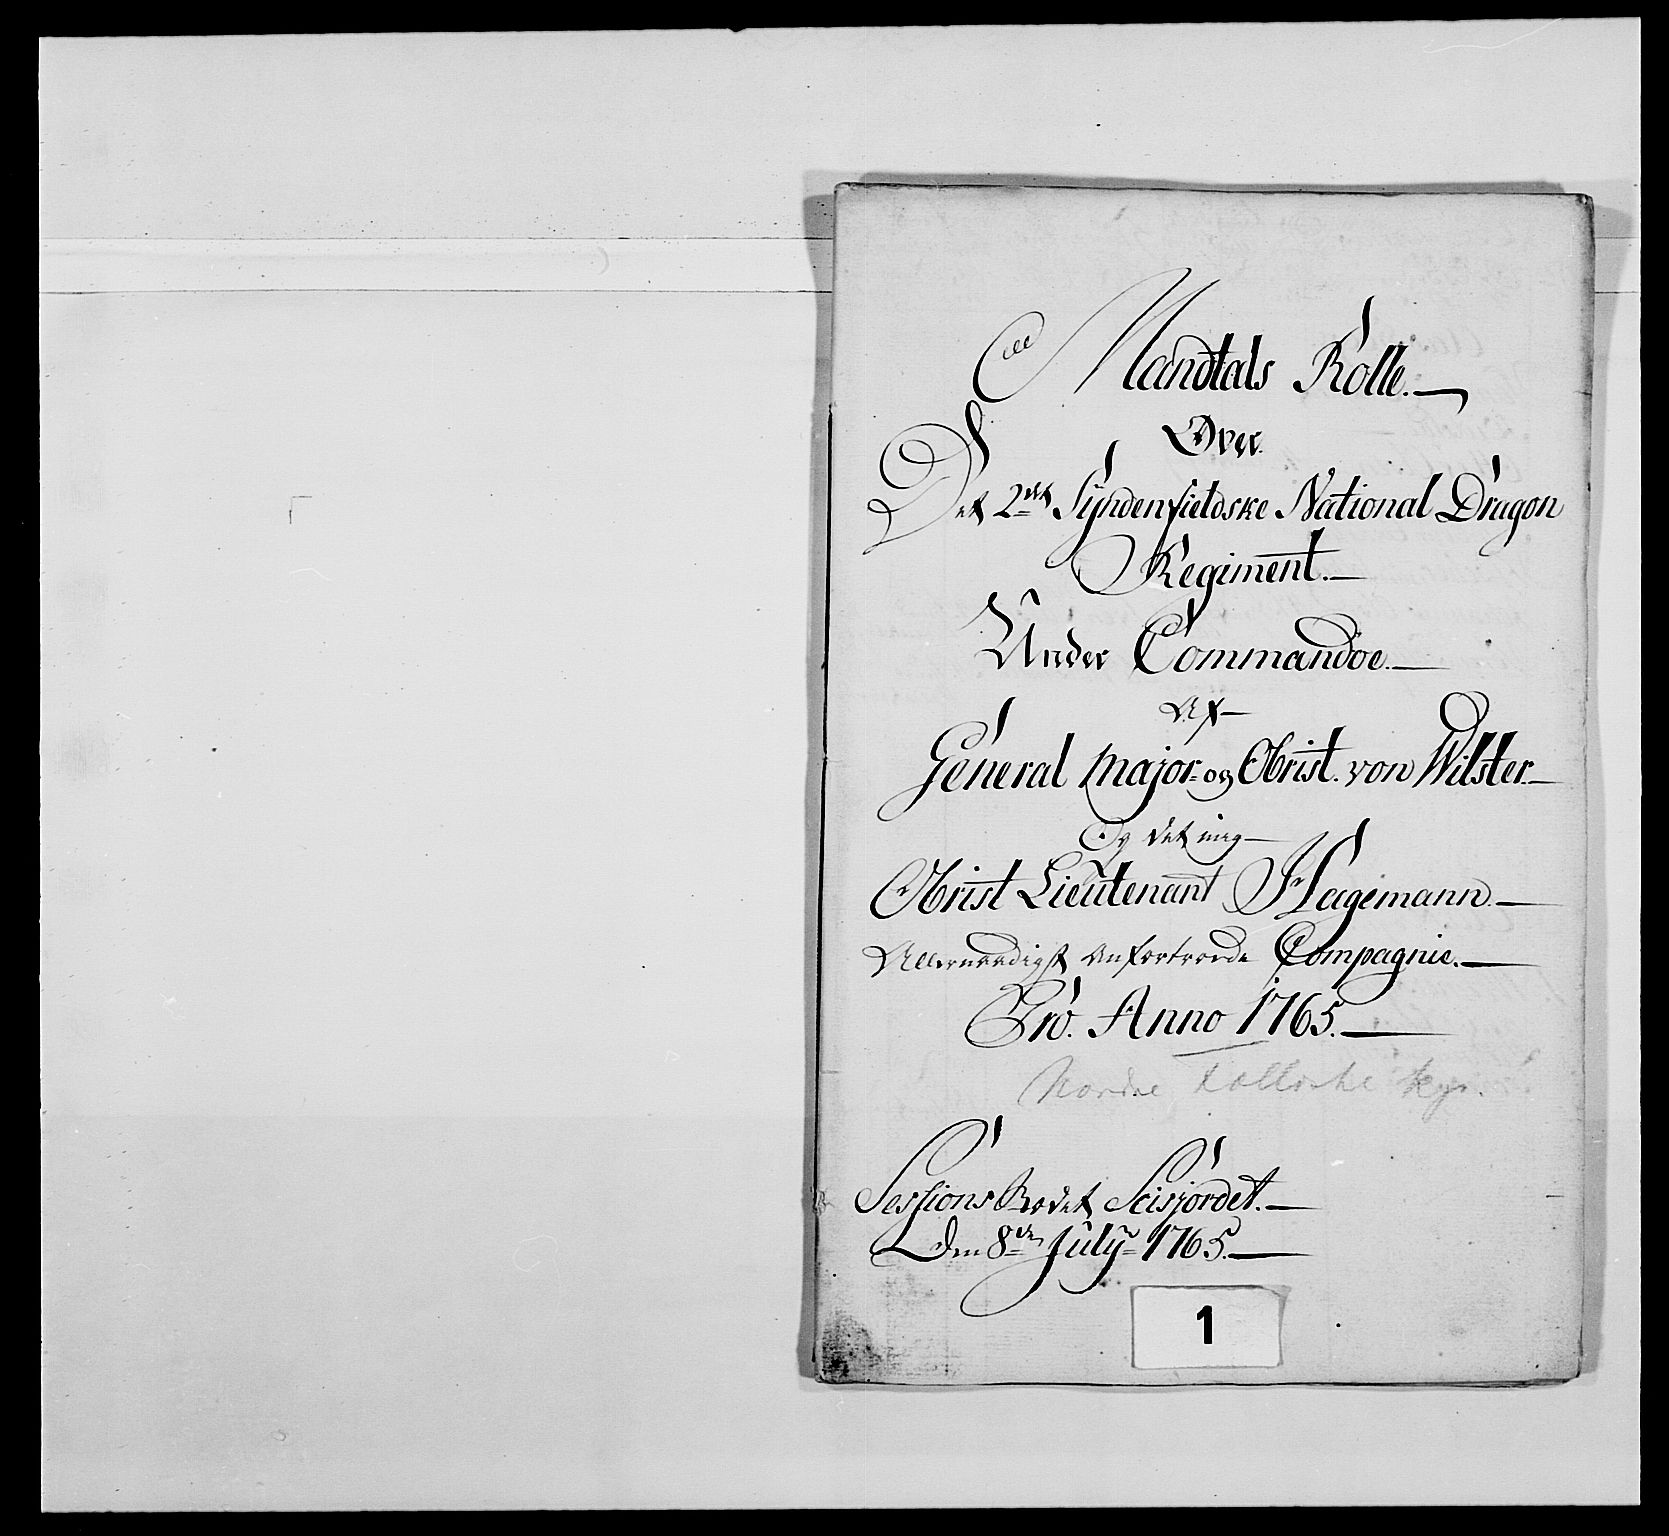 Mandtals Rolle.
Over
Det 2det Syndenfieldske National Dragon
Regiment.
Under Commandoe.
Af
General major og Obrist von Wilster
Og det mig
Obrist Lieutenant Hagemann
Allernaadigst anfortroede Compagnie.
Pro. Anno 1765.
Nordre Kp.
Sessions Stedet Scisjordet.
Den 8de July 1765.
1